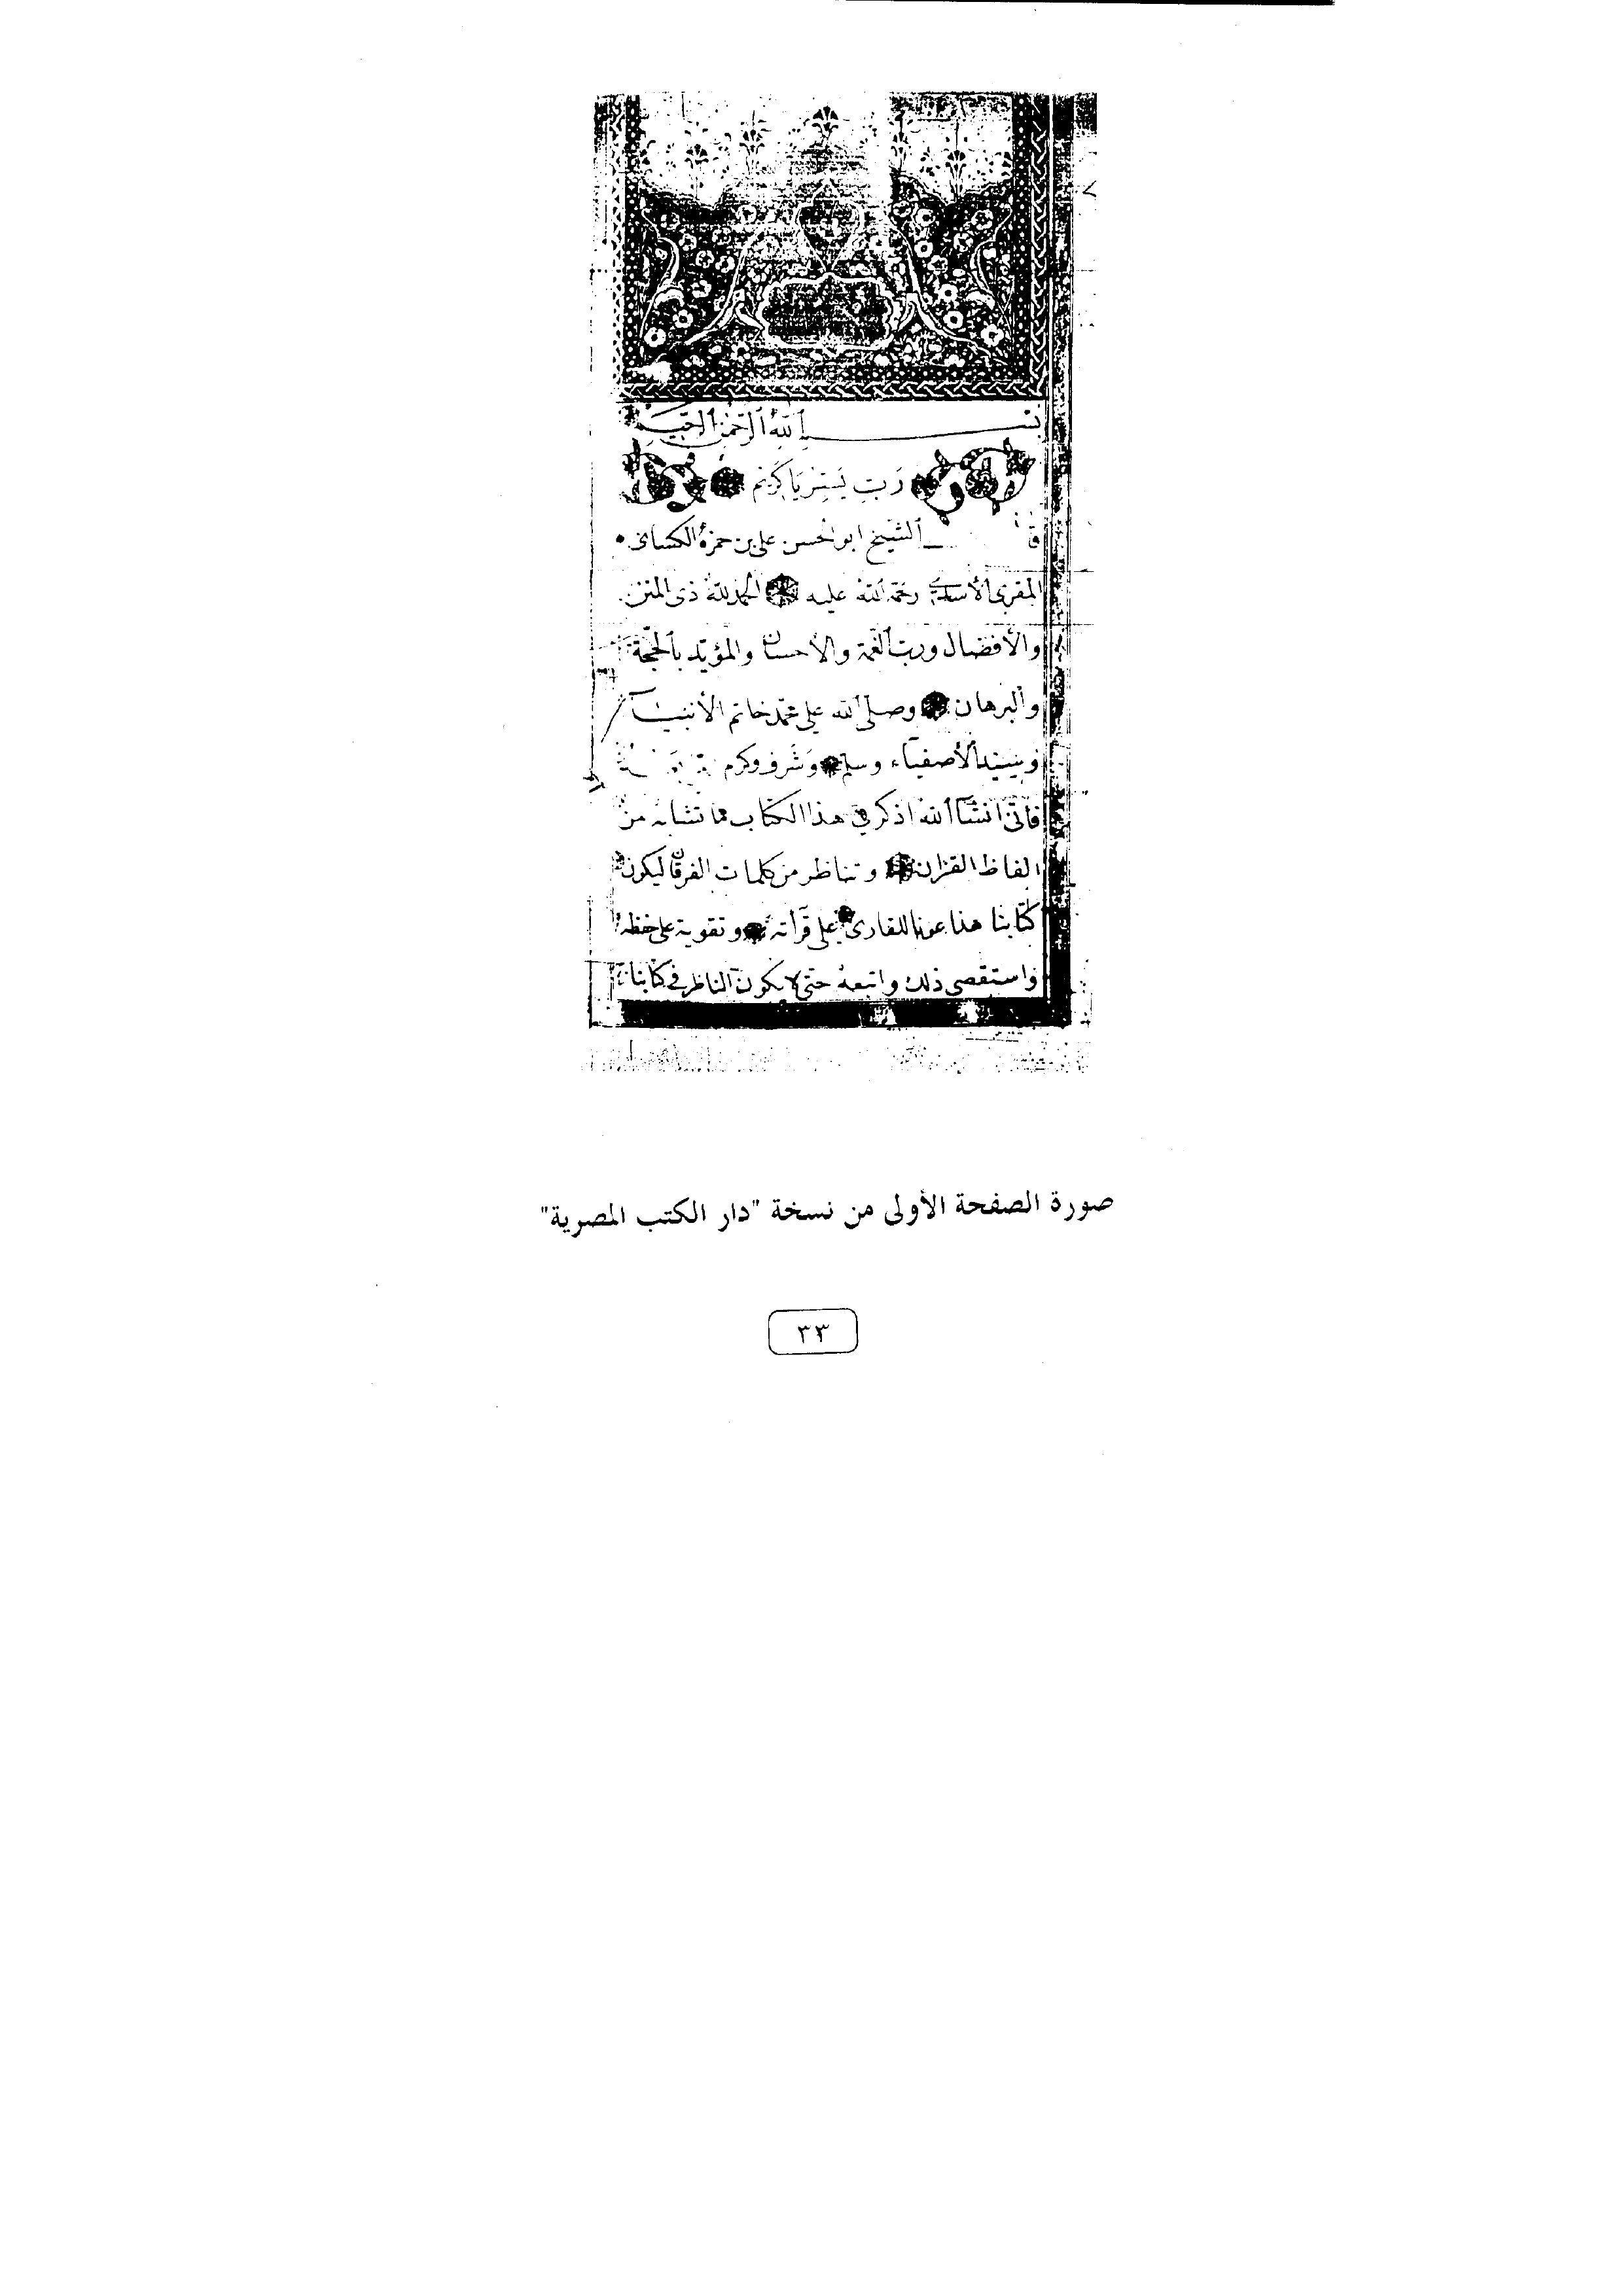 بسم الله الرحمن الرحيم
رَبِّ يَسِّر يَا كَرِيم
قال الشيخ ابو الحسن علي بن حمزة الكسائى
المقرى الأسدى رحمة الله عليه الحمد لله ذى المنن
والأفضال ورب النعمة والأحسان والمؤيد بالحجة
والبرهان وصلى الله على محمد خاتم الأنبيآ
وسيد الأصفيآء وسلم وَشَرف وكرم
فانى انشآ الله اذكر فى هذا الكتاب مما تشابه من
الفاظ القران وتناظر من كلمات الفرقان ليكون
كتابنا هذا عونا للقارى على قرآته وتقوية على حفظه
واستقصى ذلك واتبعه حتى لا يكون الناظر فى كتابنا
صورة الصفحة الأولى من نسخة "دار الكتب المصرية"
٣٣